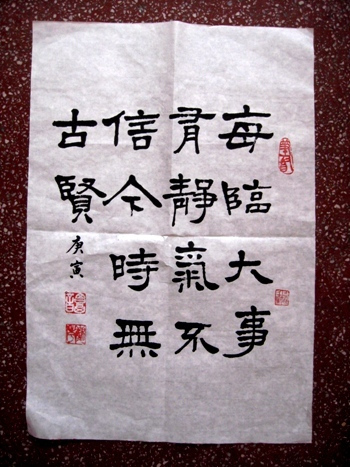 每臨大事
有靜氣不
信今時無
古賢
庚寅